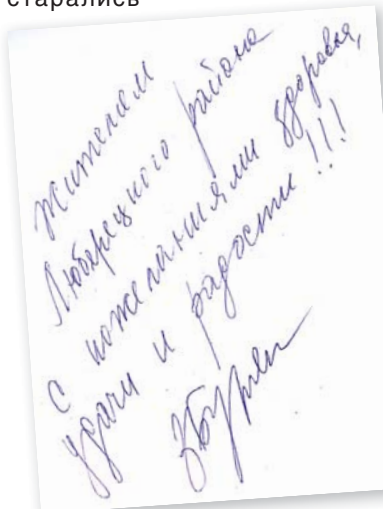 старались
Жителям
Люберецкого района
с пожеланиями здоровья,
удачи и радости!!!